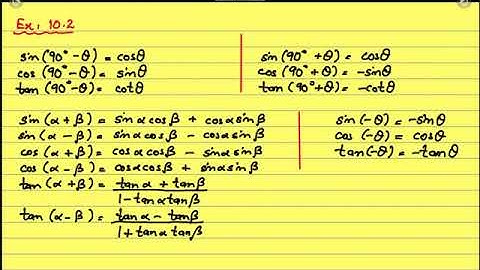 Ex. 10.2
sin(90° - θ) = cosθ
cos(90° - θ) = sinθ
tan(90° - θ) = cotθ
sin(90° + θ) = cosθ
cos(90° + θ) = -sinθ
tan(90° + θ) = -cotθ
sin(α + β) = sinα cosβ + cosα sinβ
sin(α - β) = sinα cosβ - cosα sinβ
cos(α + β) = cosα cosβ - sinα sinβ
cos(α - β) = cosα cosβ + sinα sinβ
tan(α + β) = tanα + tanβ
1 - tanα tanβ
tan(α - β) = tanα - tanβ
1 + tanα tanβ
sin(-θ) = -sinθ
cos(-θ) = cosθ
tan(-θ) = -tanθ